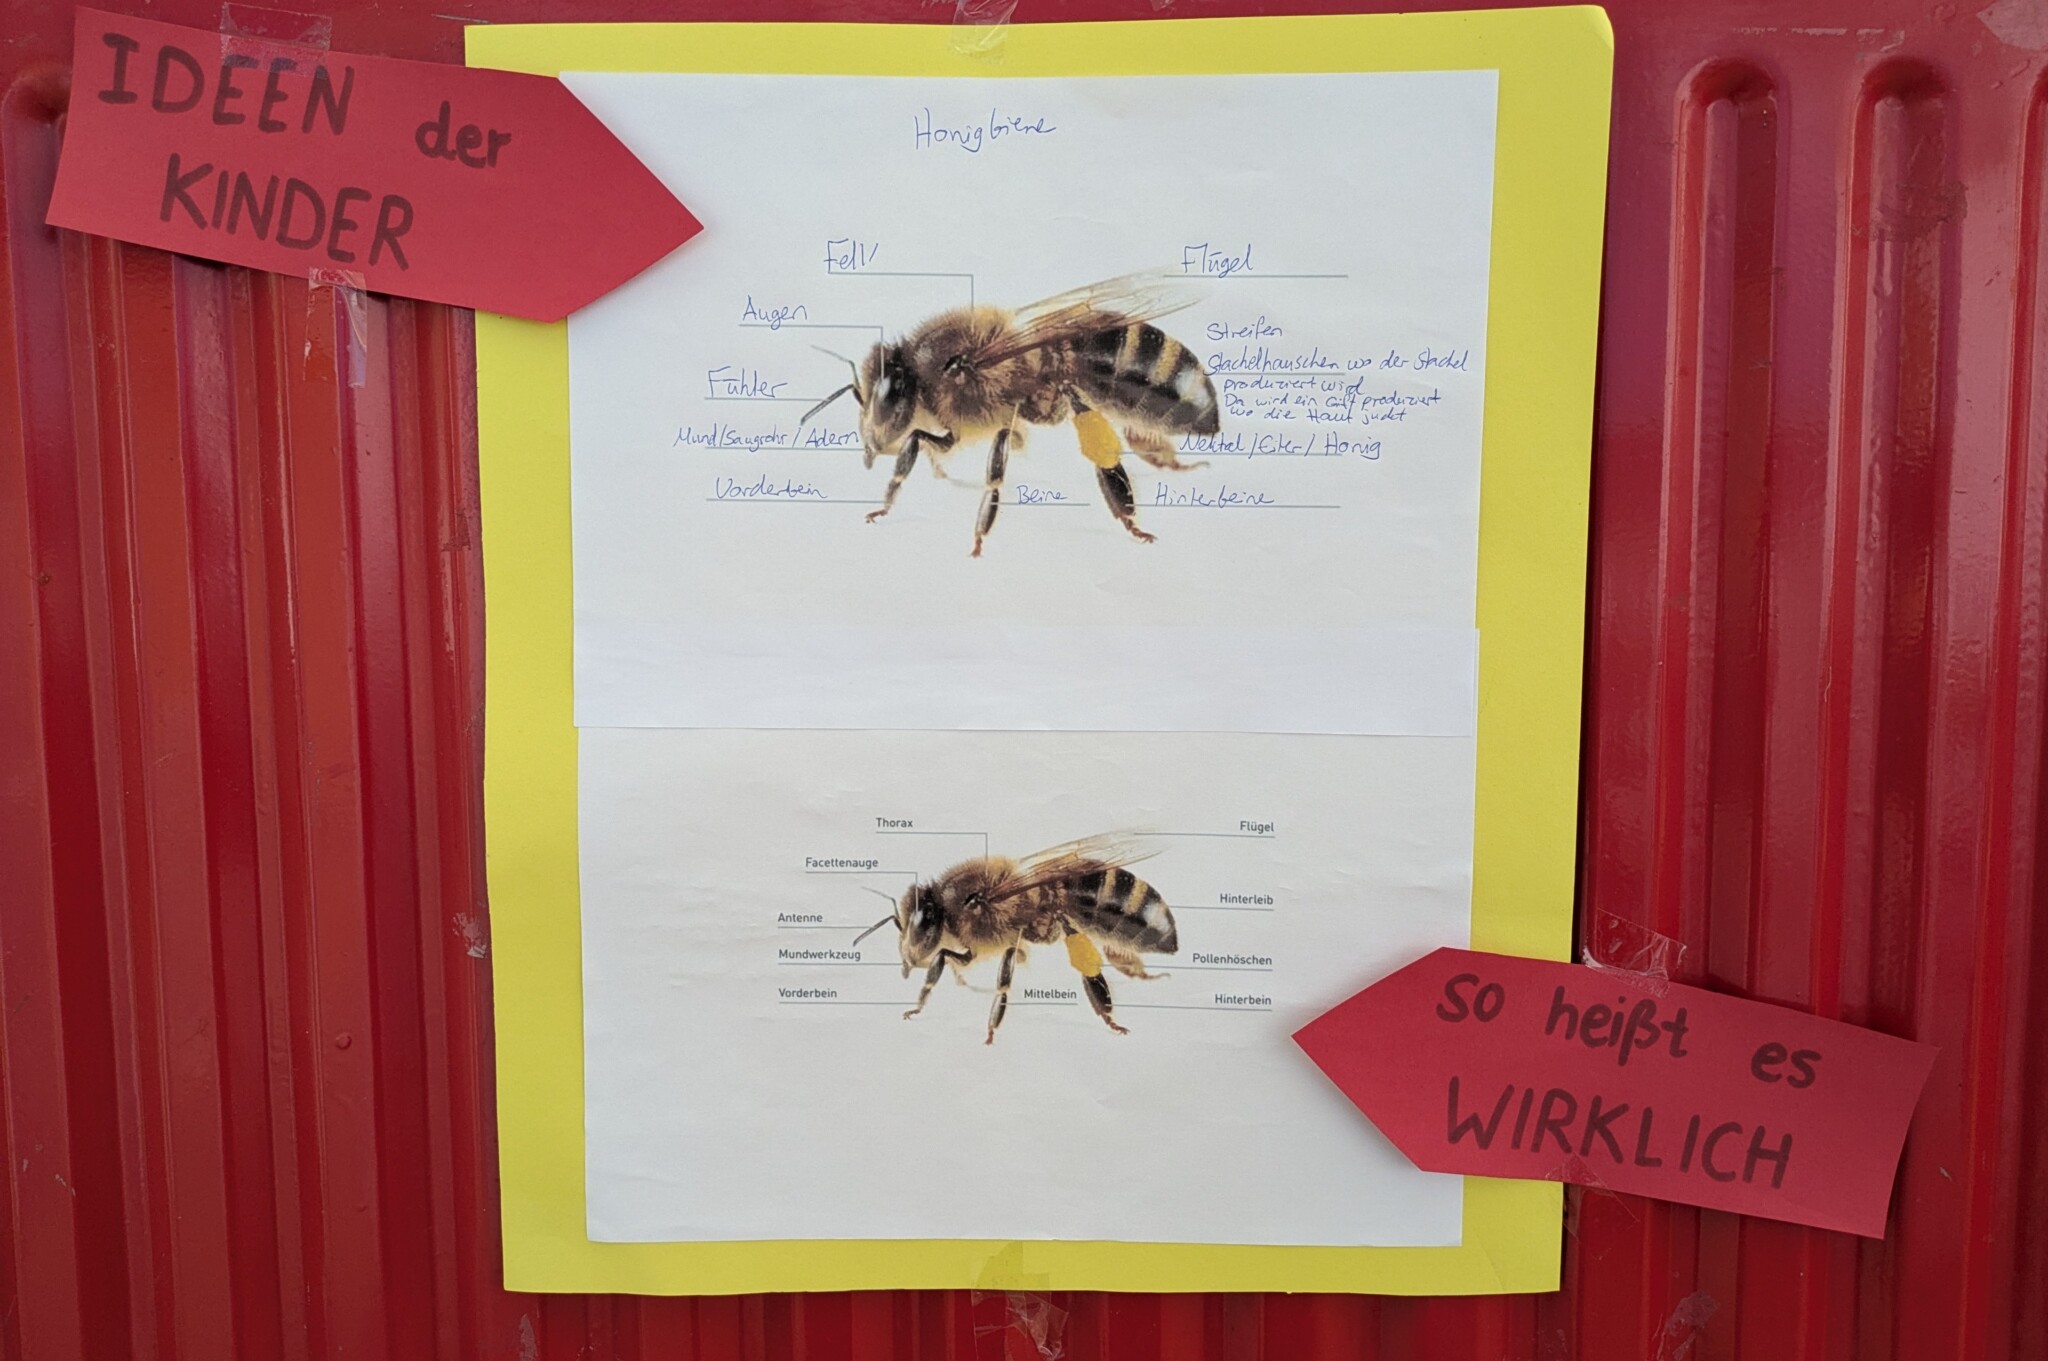 IDEEN der
KINDER
Honigbiene
Fell
Flügel
Augen
Streifen
Stachelhäuschen wo der Stachel
produziert wird
Da wird ein Gift produziert
wo die Haut juckt
Fühler
Mund/Saugrohr/Adern
Nektal/Eiter/Honig
Vorderbein
Beine
Hinterbeine
Thorax
Flügel
Facettenauge
Hinterleib
Antenne
Mundwerkzeug
Pollenhöschen
Vorderbein
Mittelbein
Hinterbein
so heißt es
WIRKLICH